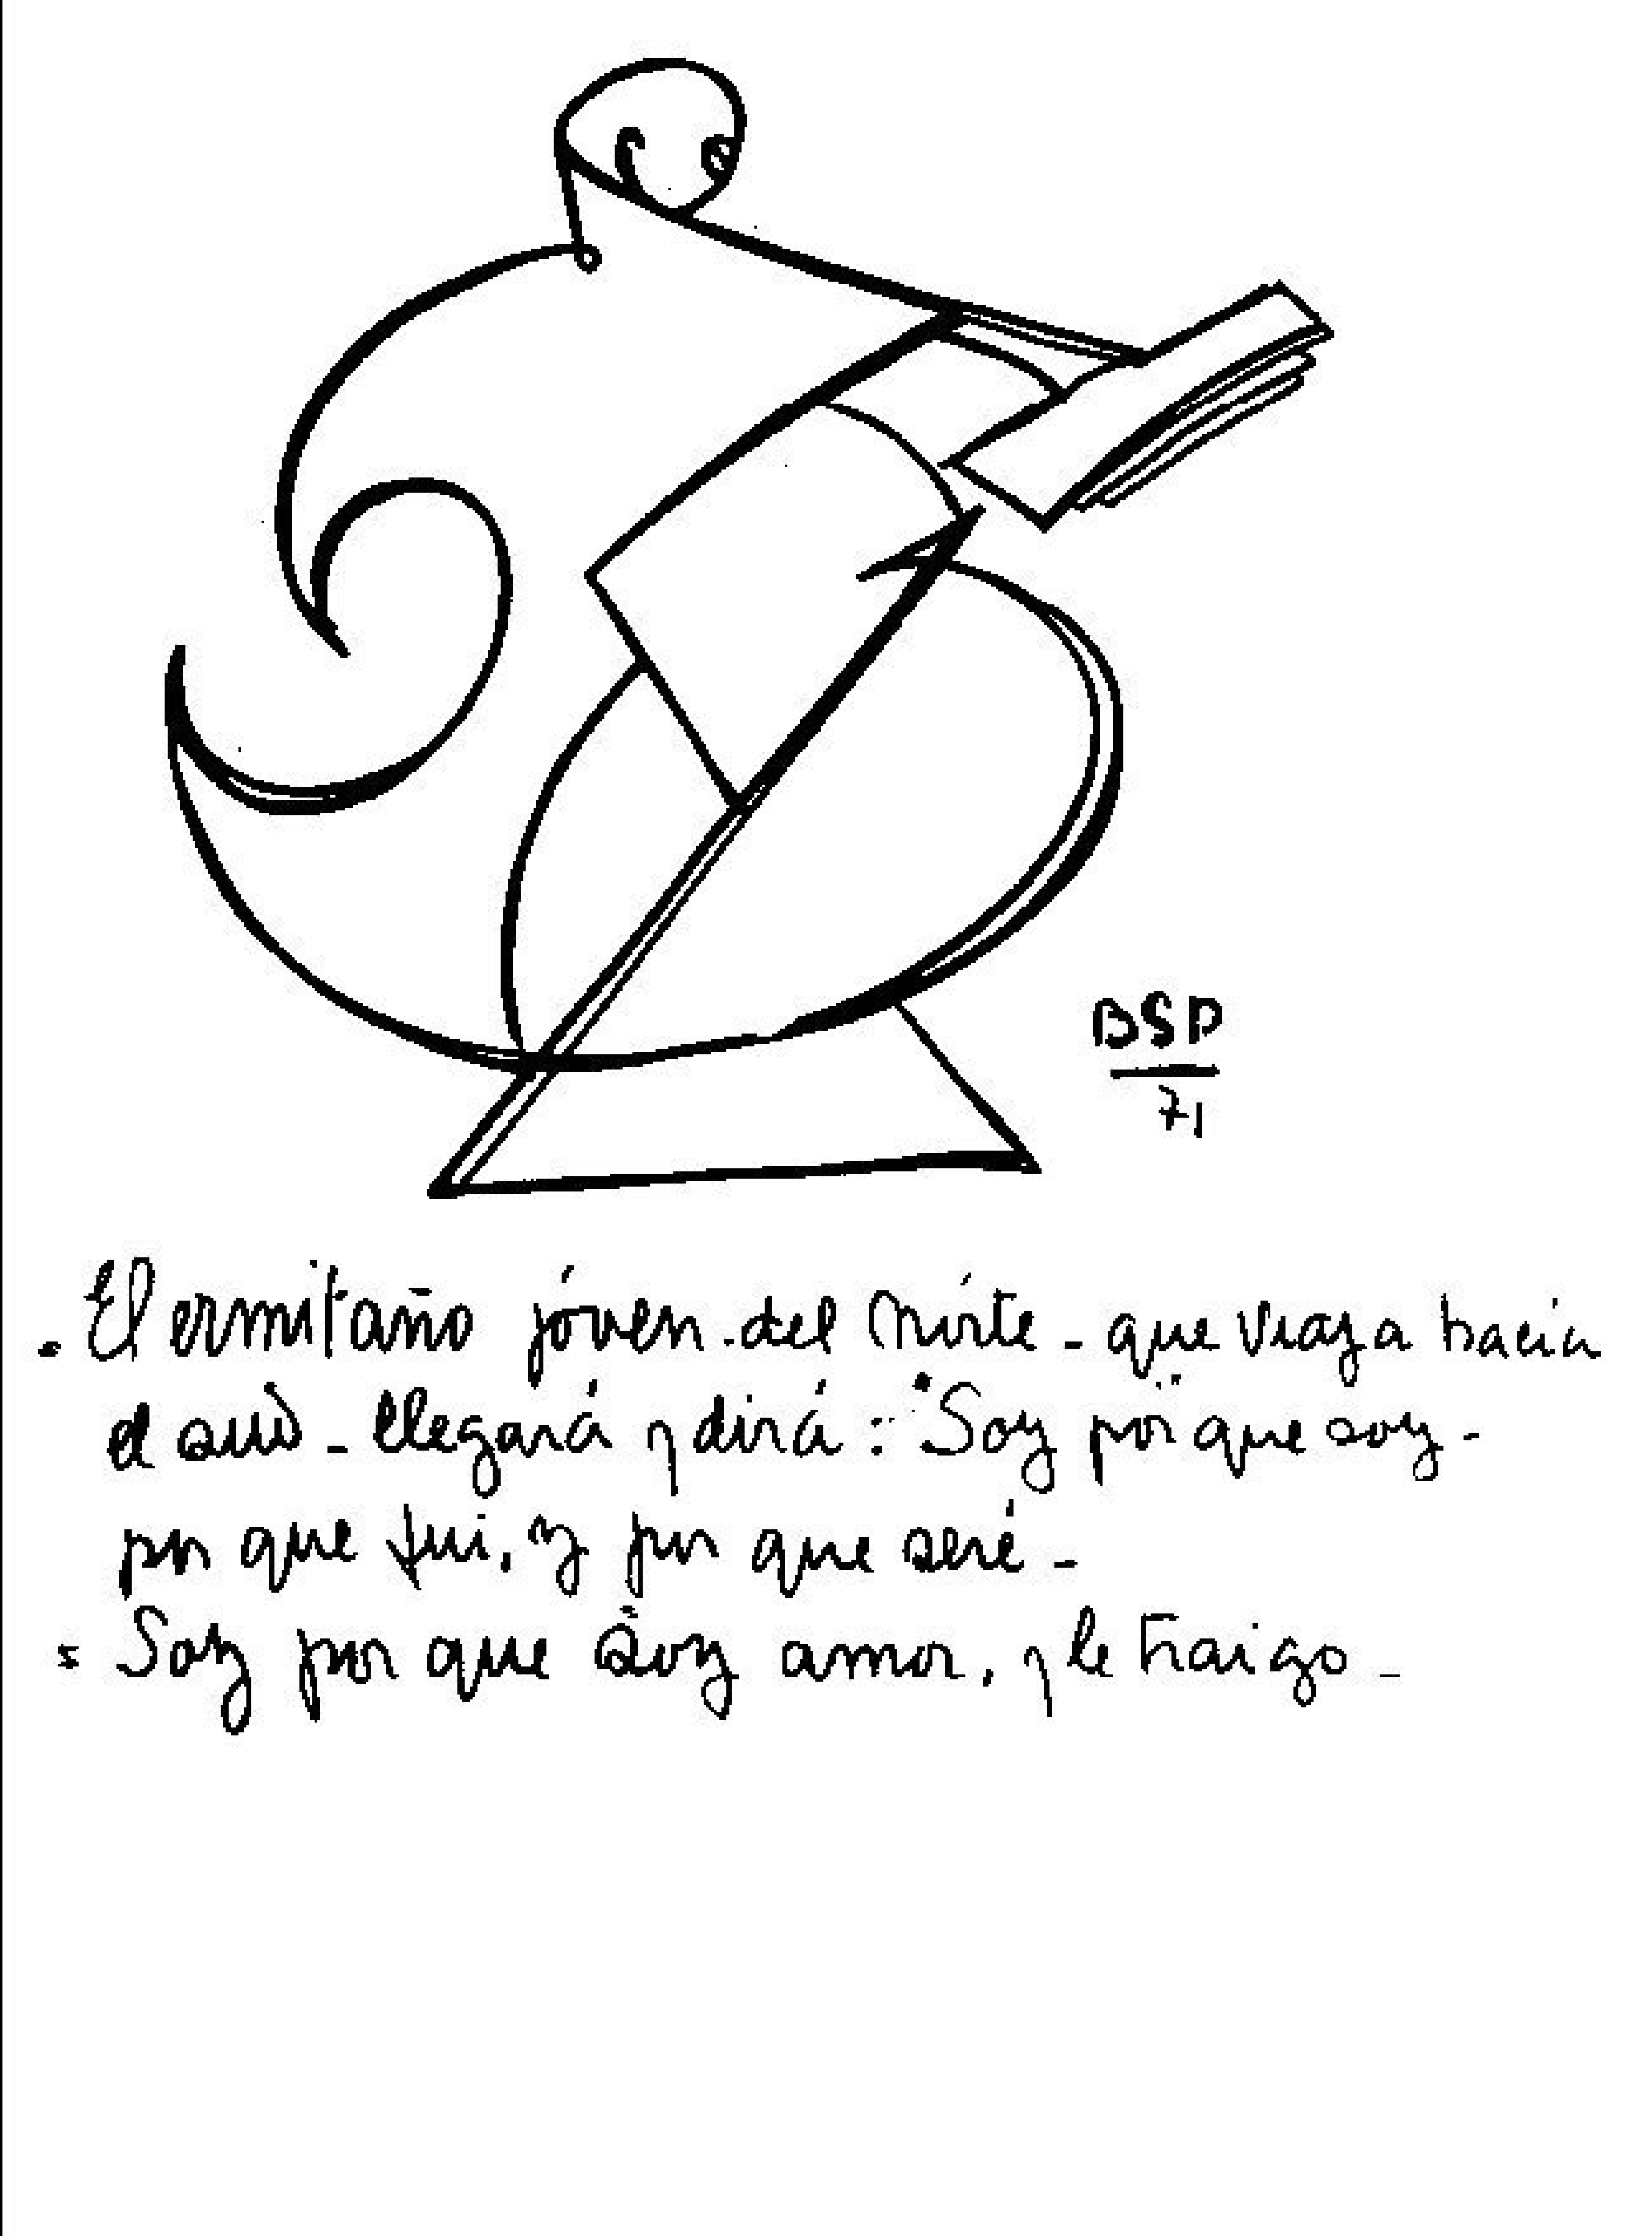 BSP
71
. El ermitaño jóven - del nórte - que viaja hacia
el sud - llegará y dirá : "Soy por que soy -
por que fui, y por que seré -
= Soy por que soy amor, y le traigo -